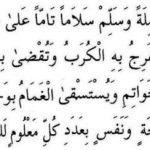 ـلَةً وَسَلِّمْ سَلَامًا تَامًّا عَلَى
ـفَرِجُ بِهِ الْكُرَبُ وَتُقْضَى بِـ
ـخَوَاتِمِ وَيُسْتَسْقَى الْغَمَامُ بِوَ
ـحَةٍ وَنَفَسٍ بِعَدَدِ كُلِّ مَعْلُومٍ لَـ